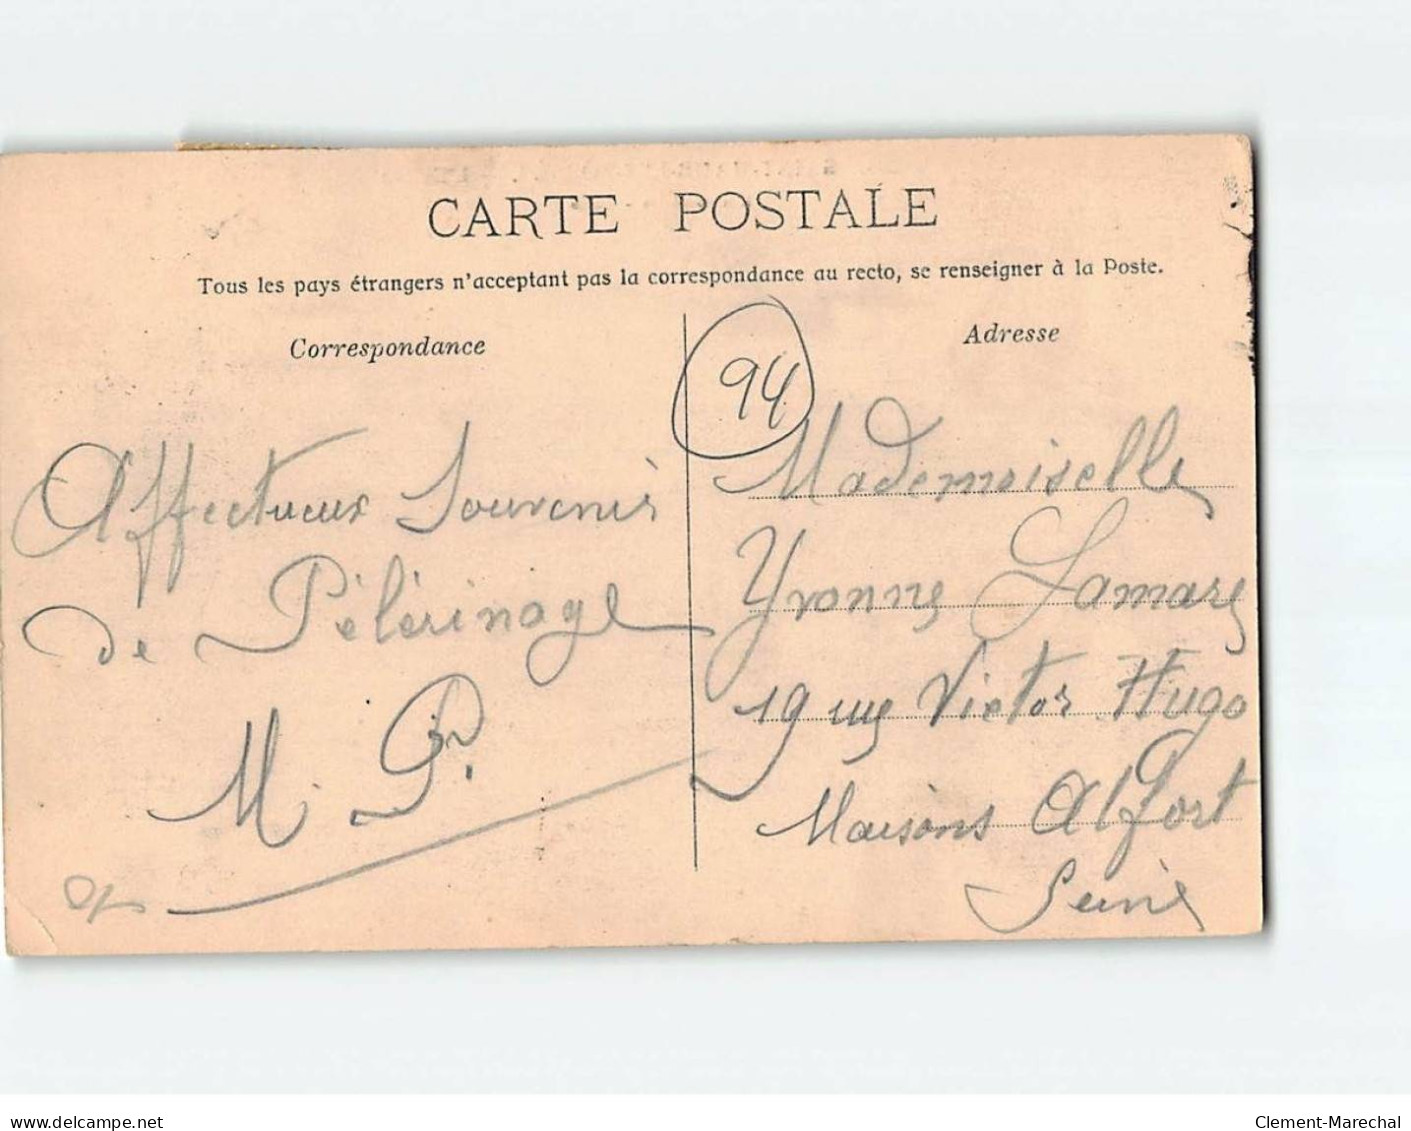 CARTE POSTALE
Tous les pays étrangers n'acceptant pas la correspondance au recto, se renseigner à la Poste.
Correspondance
Affectueux Souvenir
de Pèlèrinage
M. P.
94
Adresse
Mademoiselle
Yvonne Lamare
19 rue Victor Hugo
Maisons Alfort
Seine
www.delcampe.net
Clement-Marechal